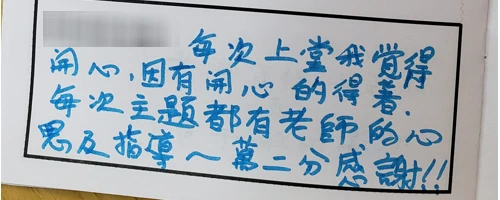 每次上堂我覺得
開心,因有開心的得着.
每次主題都有老師的心
思及指導~萬二分感謝!!